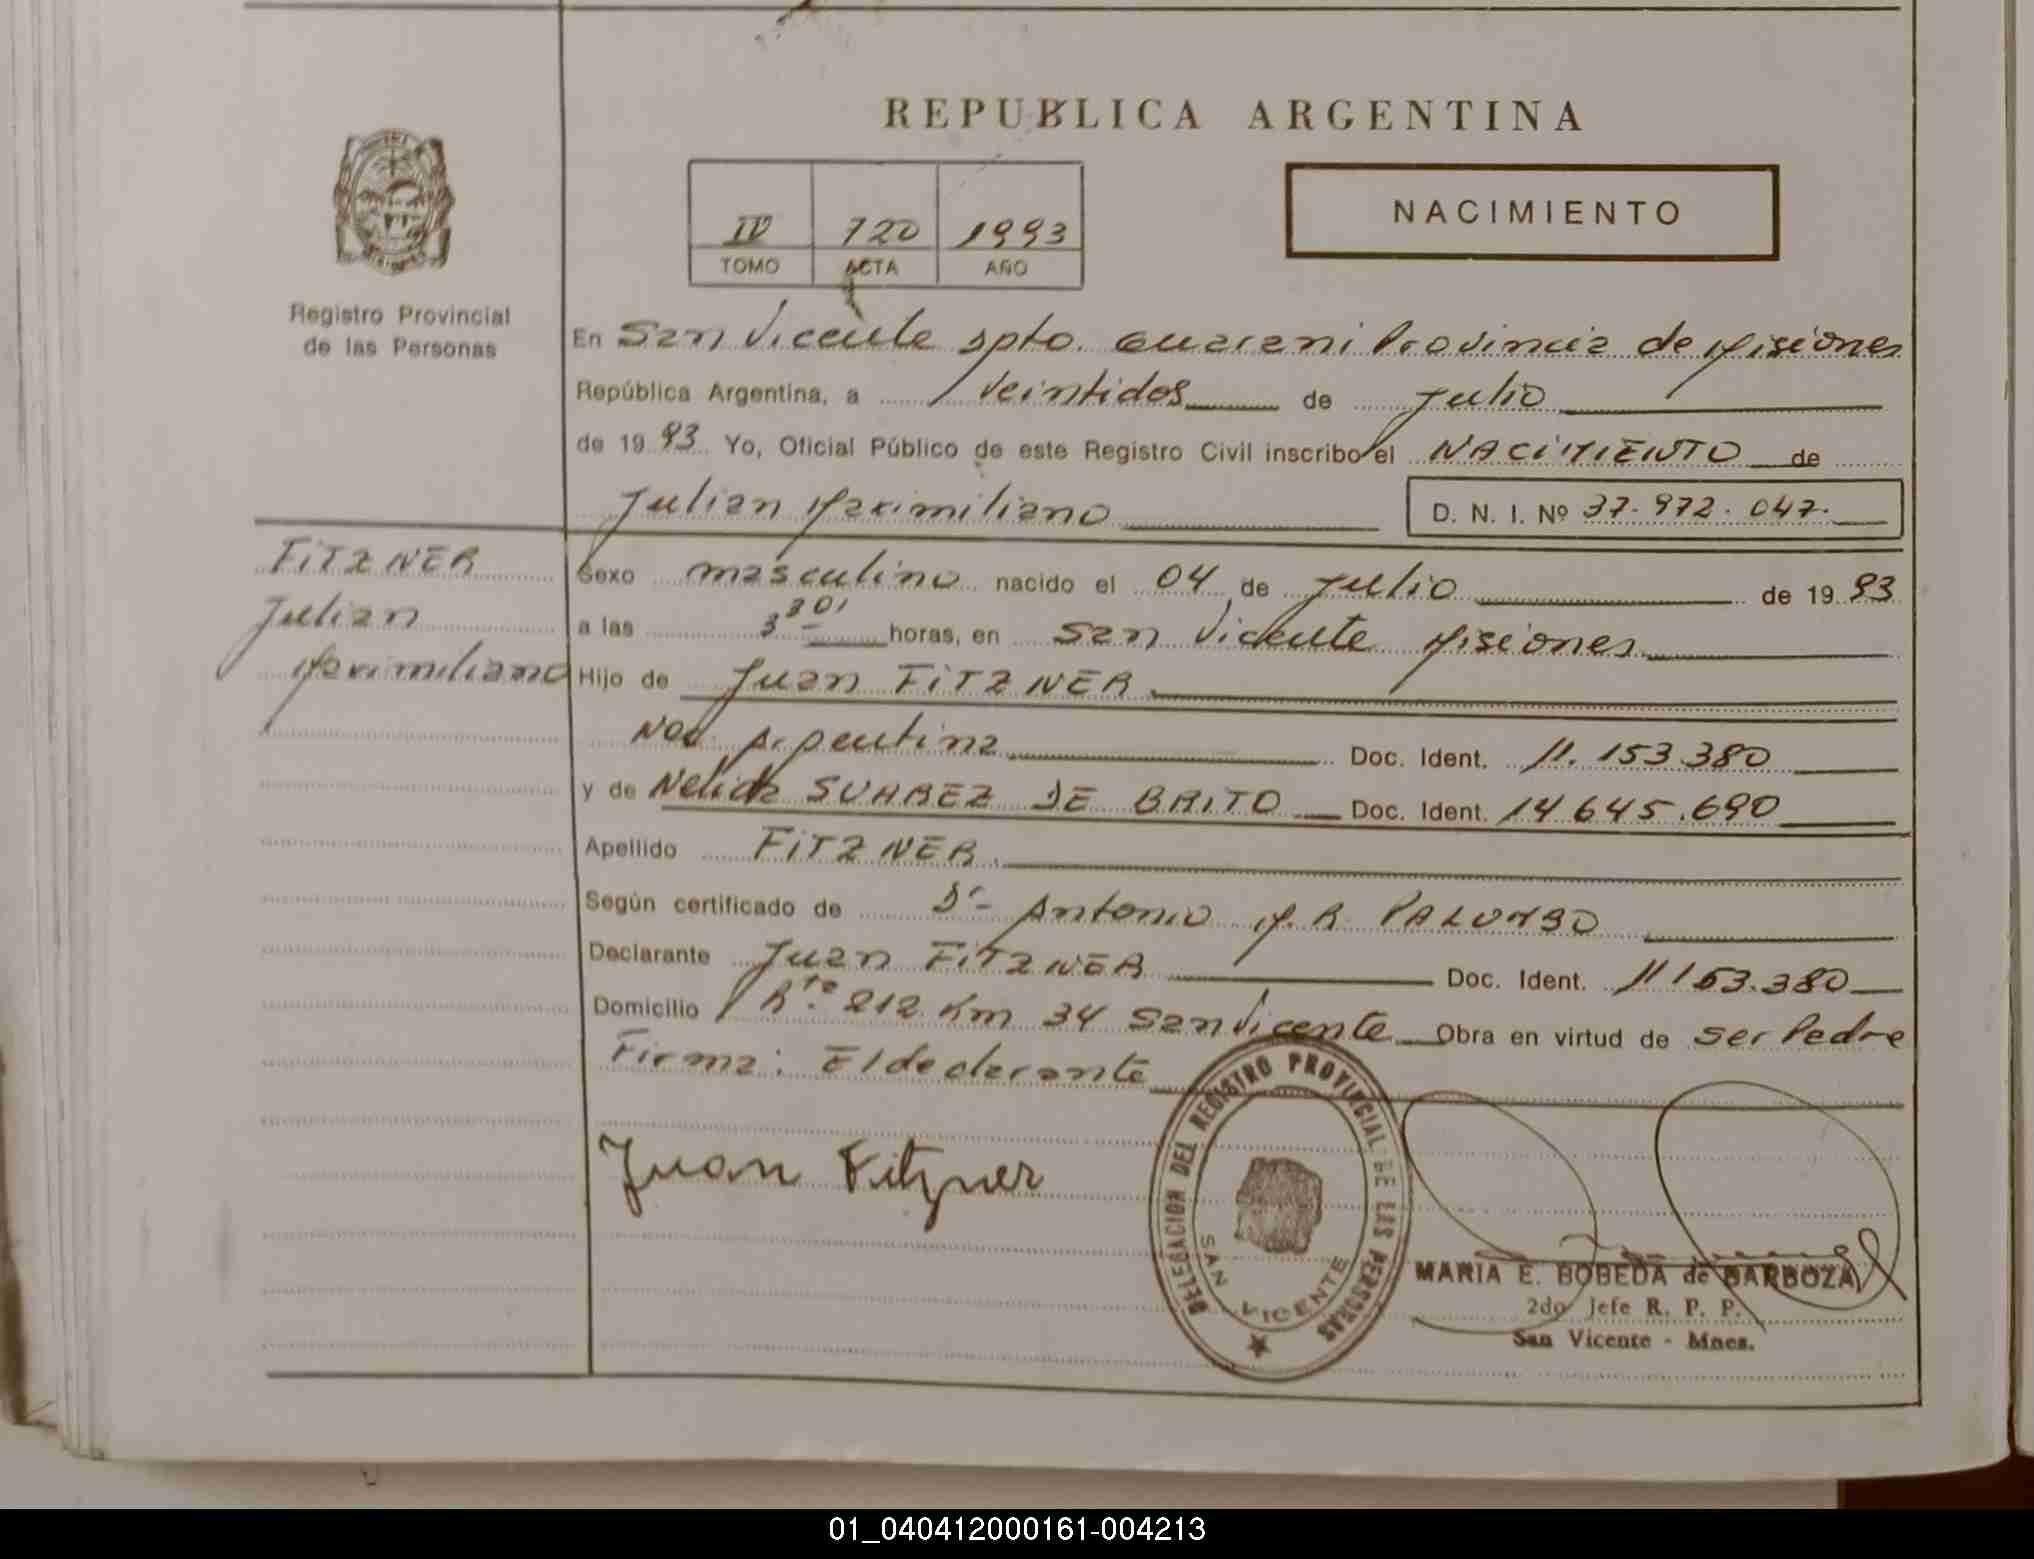 REPUBLICA ARGENTINA
IV 720 1993
TOMO ACTA AÑO
NACIMIENTO
Registro Provincial
de las Personas
En San Vicente Dpto. Guarani Provincia de Misiones
República Argentina, a veintidos de Julio
de 1993 Yo, Oficial Público de este Registro Civil inscribo el NACIMIENTO de
Julian Maximiliano D. N. I. Nº 37.972.047.
FITZNER
Julian
Maximiliano
Sexo masculino nacido el 04 de Julio de 1993
a las 3 30' horas, en San Vicente Misiones
Hijo de Juan FITZNER
Nac. Argentina Doc. Ident. 11.153.380
y de Nelida SUAREZ DE BRITO Doc. Ident. 14.645.690
Apellido FITZNER
Según certificado de Dr Antonio M.R. PALUMBO
Declarante Juan FITZNER Doc. Ident. 11153.380
Domicilio Rta. 212 Km 34 San Vicente Obra en virtud de ser Padre
Firma: El declarante
Juan Fitzner
DELEGACION DEL REGISTRO PROVINCIAL DE LAS PERSONAS
SAN VICENTE
MARIA E. BOBEDA de BARBOZA
2do. Jefe R. P. P.
San Vicente - Mnes.
01_040412000161-004213